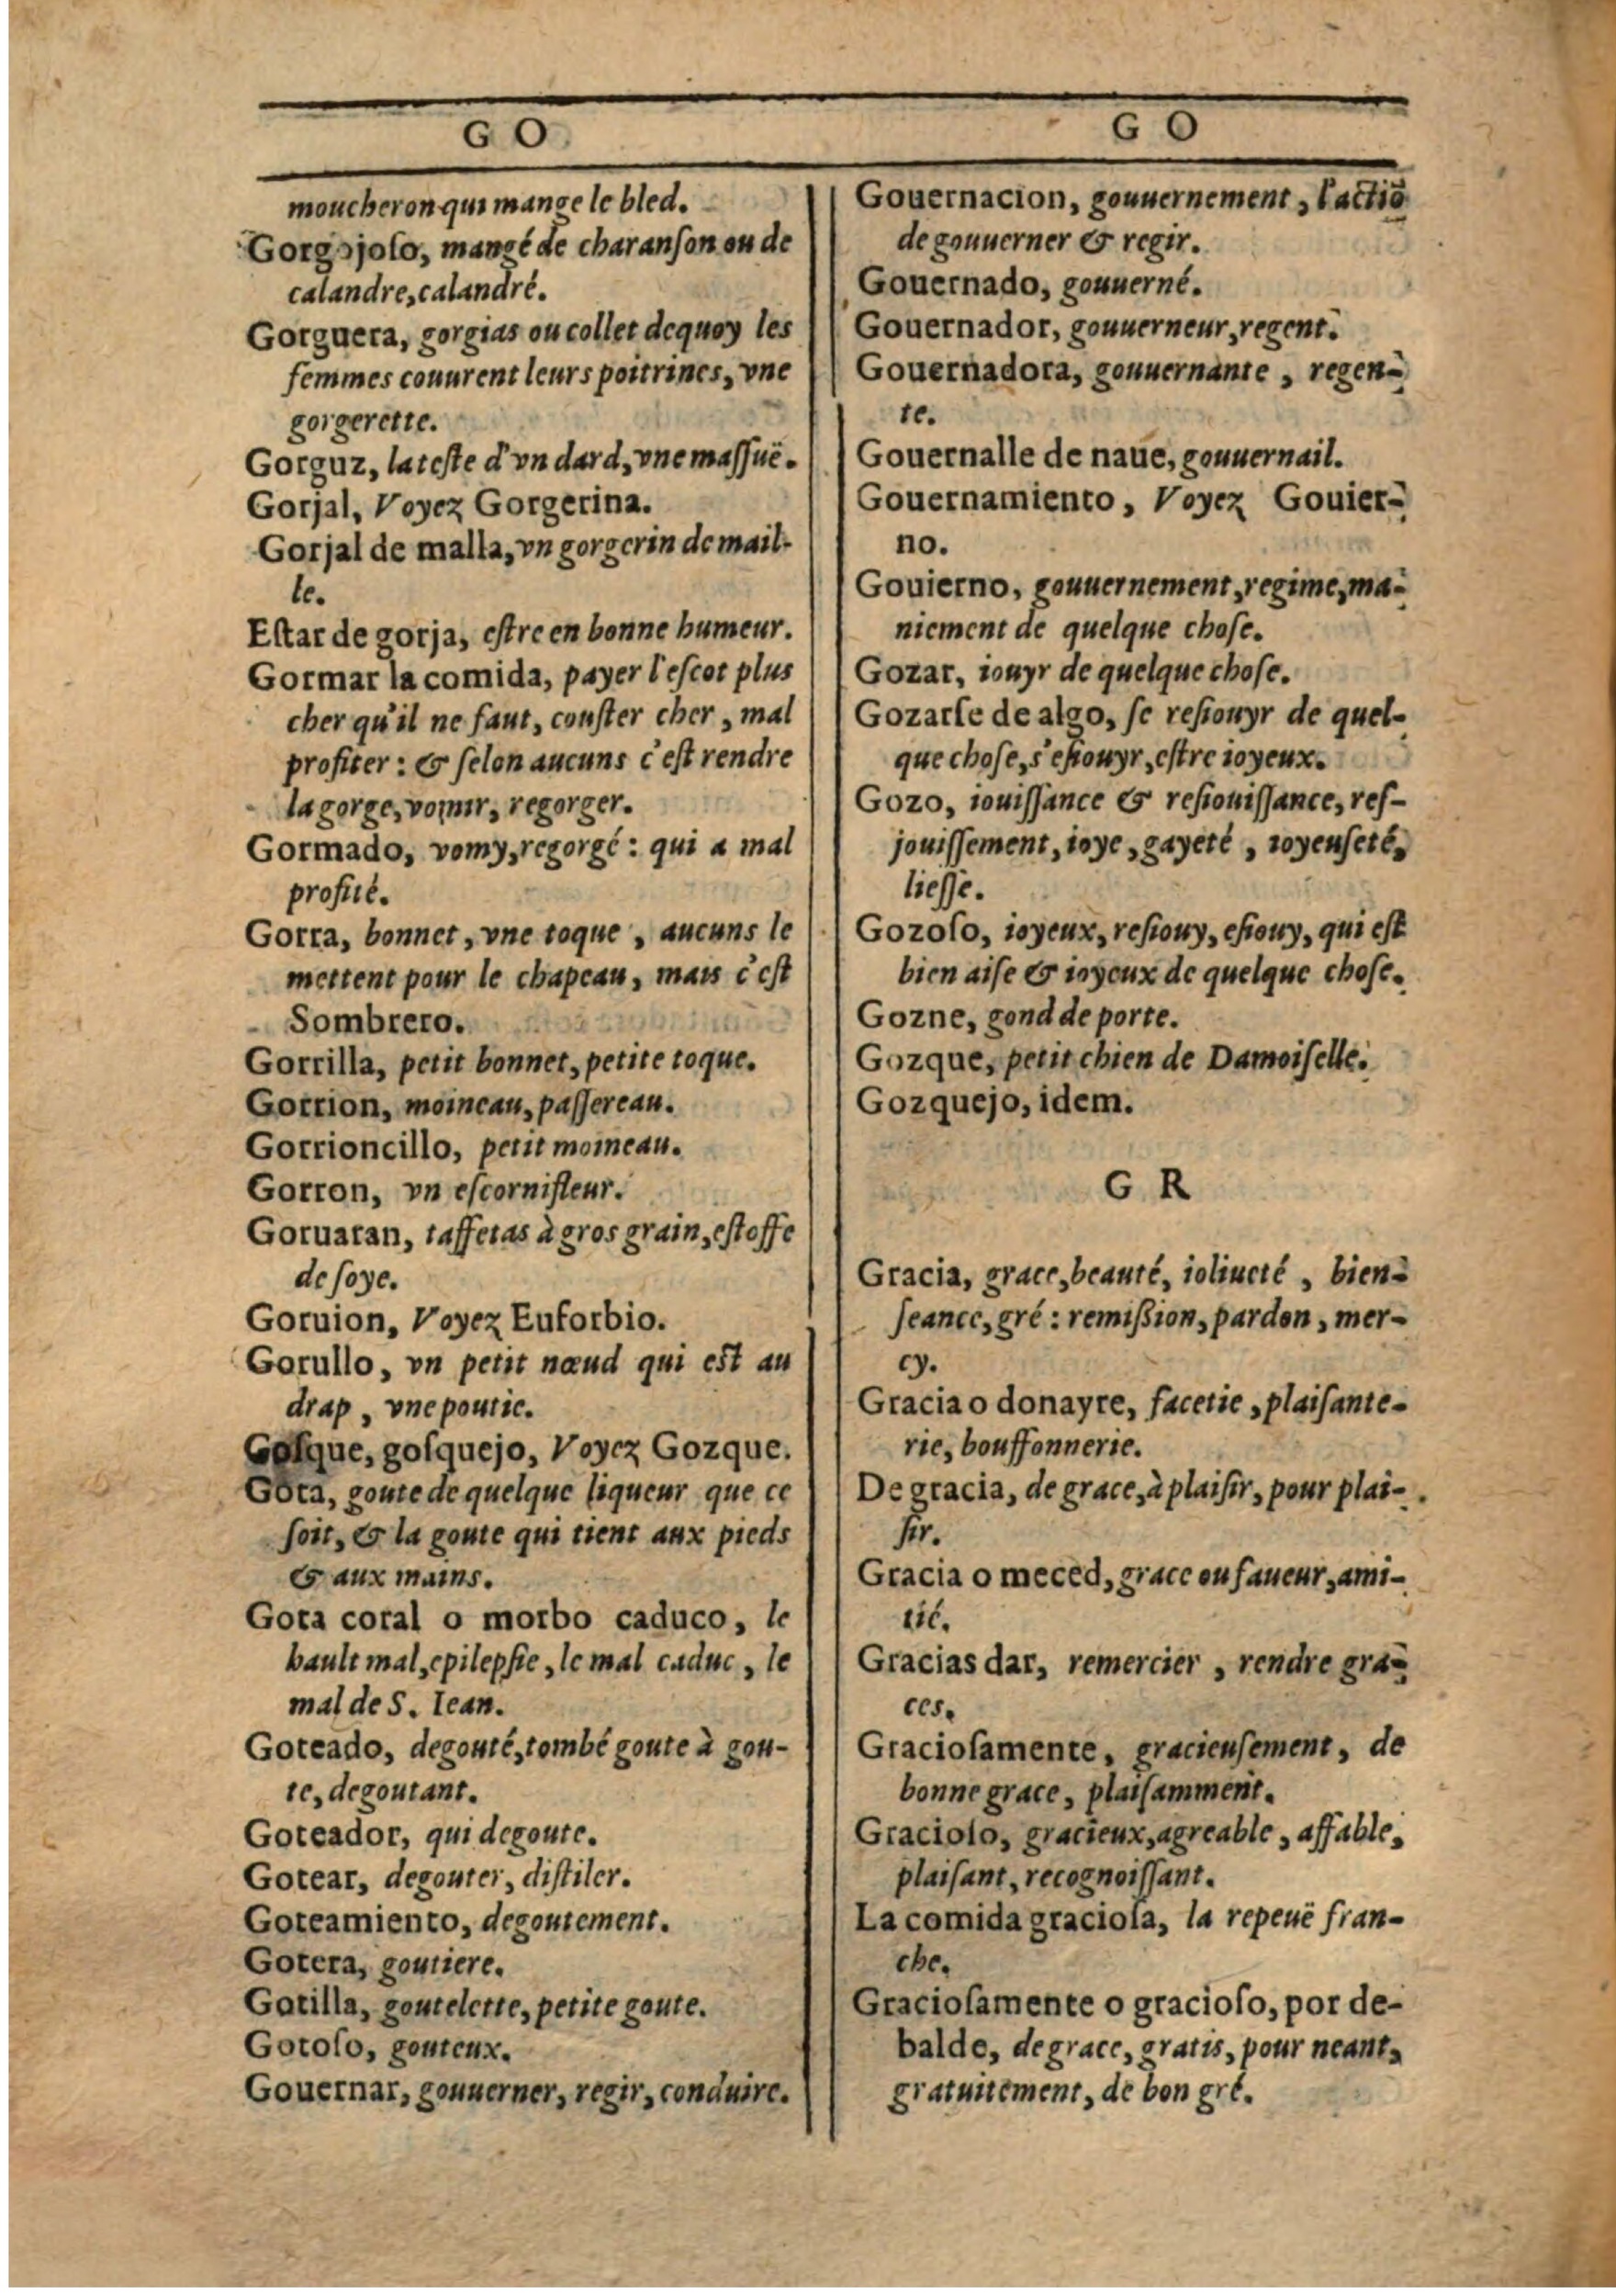 G O
moucheron qui mange le bled.
Gorgojoſo, mangé de charanſon ou de
calandre, calandré.
Gorguera, gorgias ou collet dequoy les
femmes couurent leurs poitrines, vne
gorgerette.
Gorguz, la teſte d'vn dard, vne maſſuë.
Gorjal, Voyez Gorgerina.
Gorjal de malla, vn gorgerin de mail-
le.
Eſtar de gorja, eſtre en bonne humeur.
Gormar la comida, payer l'eſcot plus
cher qu'il ne faut, couſter cher, mal
profiter: & ſelon aucuns c'eſt rendre
la gorge, vomir, regorger.
Gormado, vomy, regorgé: qui a mal
profité.
Gorra, bonnet, vne toque, aucuns le
mettent pour le chapeau, mais c'eſt
Sombrero.
Gorrilla, petit bonnet, petite toque.
Gorrion, moineau, paſſereau.
Gorrioncillo, petit moineau.
Gorron, vn eſcornifleur.
Goruaran, taffetas à gros grain, eſtoffe
de ſoye.
Goruion, Voyez Euforbio.
Gorullo, vn petit nœud qui eſt au
drap, vne poutie.
Goſque, goſquejo, Voyez Gozque.
Gota, goute de quelque liqueur que ce
ſoit, & la goute qui tient aux pieds
& aux mains.
Gota coral o morbo caduco, le
hault mal, epilepſie, le mal caduc, le
mal de S. Iean.
Goteado, degouté, tombé goute à gou-
te, degoutant.
Goteador, qui degoute.
Gotear, degouter, diſtiler.
Goteamiento, degoutement.
Gotera, goutiere.
Gotilla, goutelette, petite goute.
Gotoſo, gouteux.
Gouernar, gouuerner, regir, conduire.
G O
Gouernacion, gouuernement, l'actiõ
de gouuerner & regir.
Gouernado, gouuerné.
Gouernador, gouuerneur, regent.
Gouernadora, gouuernante, regen-
te.
Gouernalle de naue, gouuernail.
Gouernamiento, Voyez Gouier-
no.
Gouierno, gouuernement, regime, ma-
niement de quelque choſe.
Gozar, iouyr de quelque choſe.
Gozarſe de algo, ſe reſiouyr de quel-
que choſe, s'eſiouyr, eſtre ioyeux.
Gozo, iouiſſance & reſiouiſſance, reſ-
jouiſſement, ioye, gayeté, ioyeuſeté,
lieſſe.
Gozoſo, ioyeux, reſiouy, eſiouy, qui eſt
bien aiſe & ioyeux de quelque choſe.
Gozne, gond de porte.
Gozque, petit chien de Damoiſelle.
Gozquejo, idem.
G R
Gracia, grace, beauté, ioliueté, bien-
ſeance, gré: remiſſion, pardon, mer-
cy.
Gracia o donayre, facetie, plaiſante-
rie, bouffonnerie.
De gracia, de grace, à plaiſir, pour plai-
ſir.
Gracia o meced, grace ou faueur, ami-
tié.
Gracias dar, remercier, rendre gra-
ces.
Gracioſamente, gracieuſement, de
bonne grace, plaiſamment.
Gracioſo, gracieux, agreable, affable,
plaiſant, recognoiſſant.
La comida gracioſa, la repeuë fran-
che.
Gracioſamente o gracioſo, por de-
balde, de grace, gratis, pour neant,
gratuitement, de bon gré.